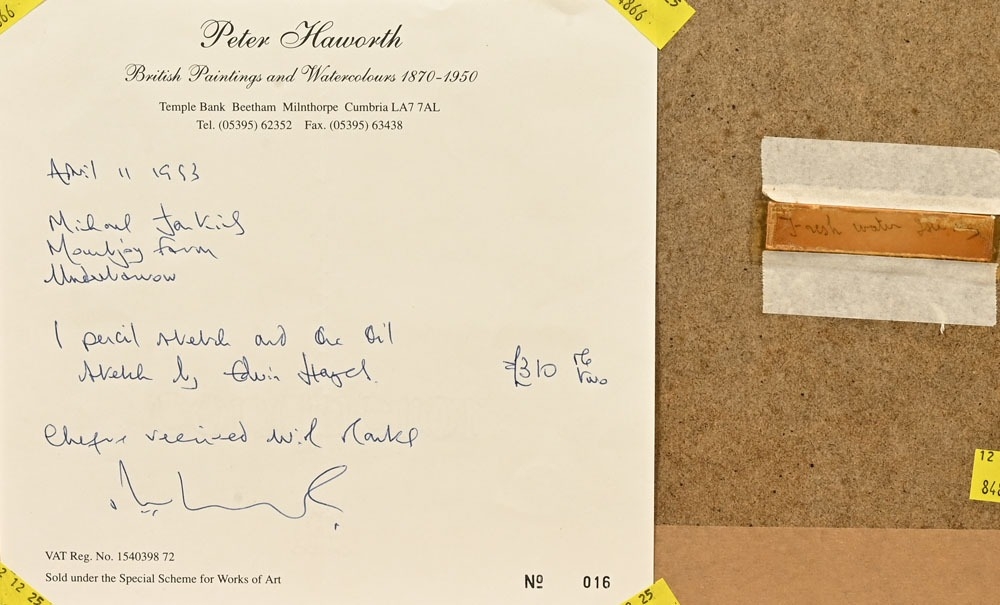 Peter Haworth
British Paintings and Watercolours 1870-1950
Temple Bank Beetham Milnthorpe Cumbria LA7 7AL
Tel. (05395) 62352 Fax. (05395) 63438
April 11 1993
Michael Jenkins
Mountjoy Farm
Underbarrow
1 pencil sketch and one oil
sketch by Edwin Hayes.
£310 the two
Cheque received with thanks
VAT Reg. No. 1540398 72
Sold under the Special Scheme for Works of Art
Nº 016
66
4866
25
2 12 25
25
12
848